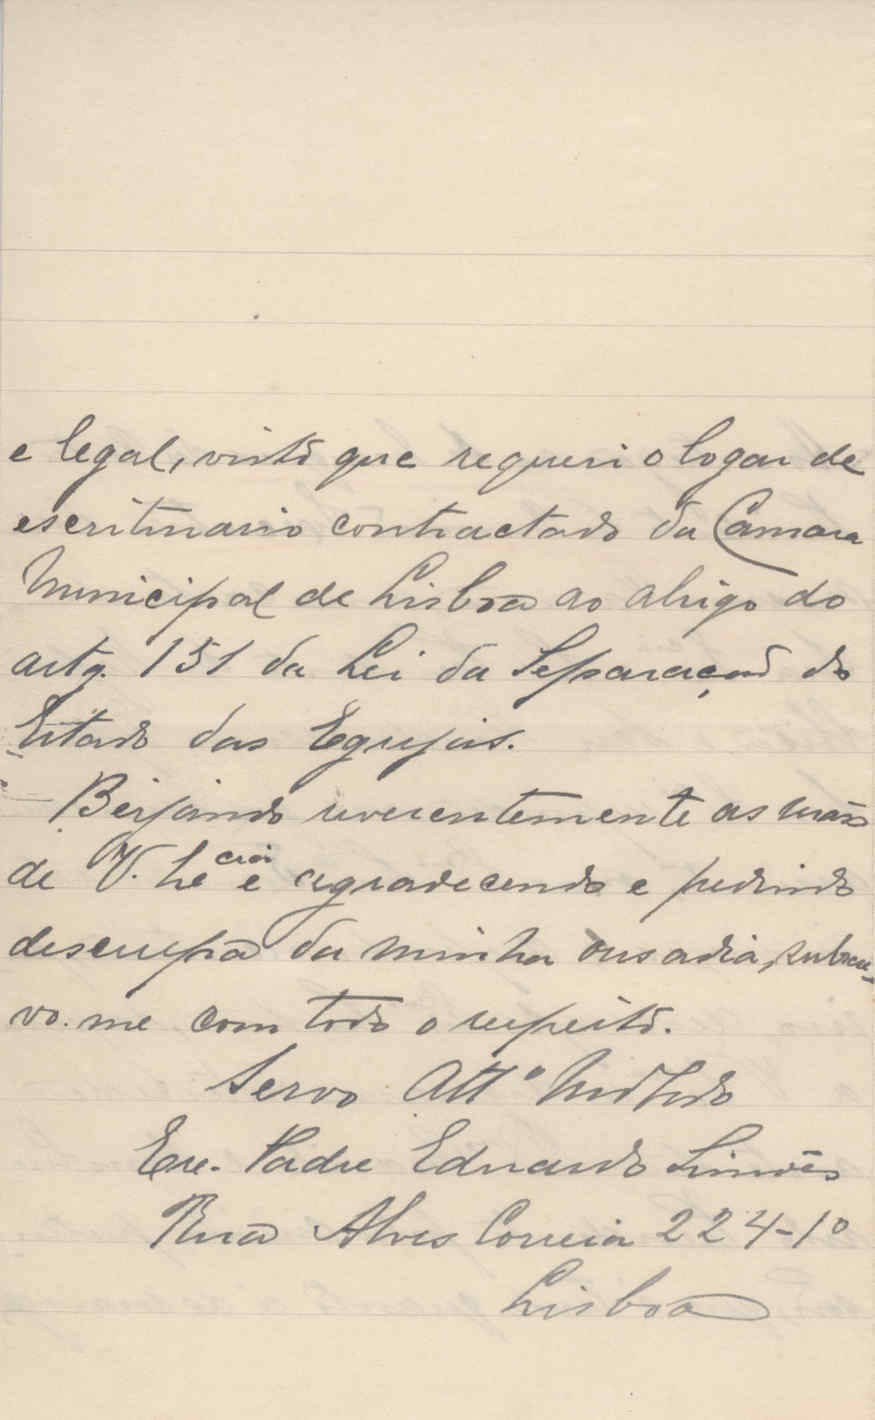 e legal, visto que requeri o logar de
escriturario contractado da Camara
Municipal de Lisboa ao abrigo do
artg. 151 da Lei da Separação do
Estado das Egrejas.
Beijando reverentemente as mãos
de V. Ex cia e agradecendo e pedindo
desculpa da minha ousadia, subscre-
vo-me com todo o respeito.
Servo Att.º
Padre Eduardo Simões
Rua Alves Correia 224-1º
Lisboa